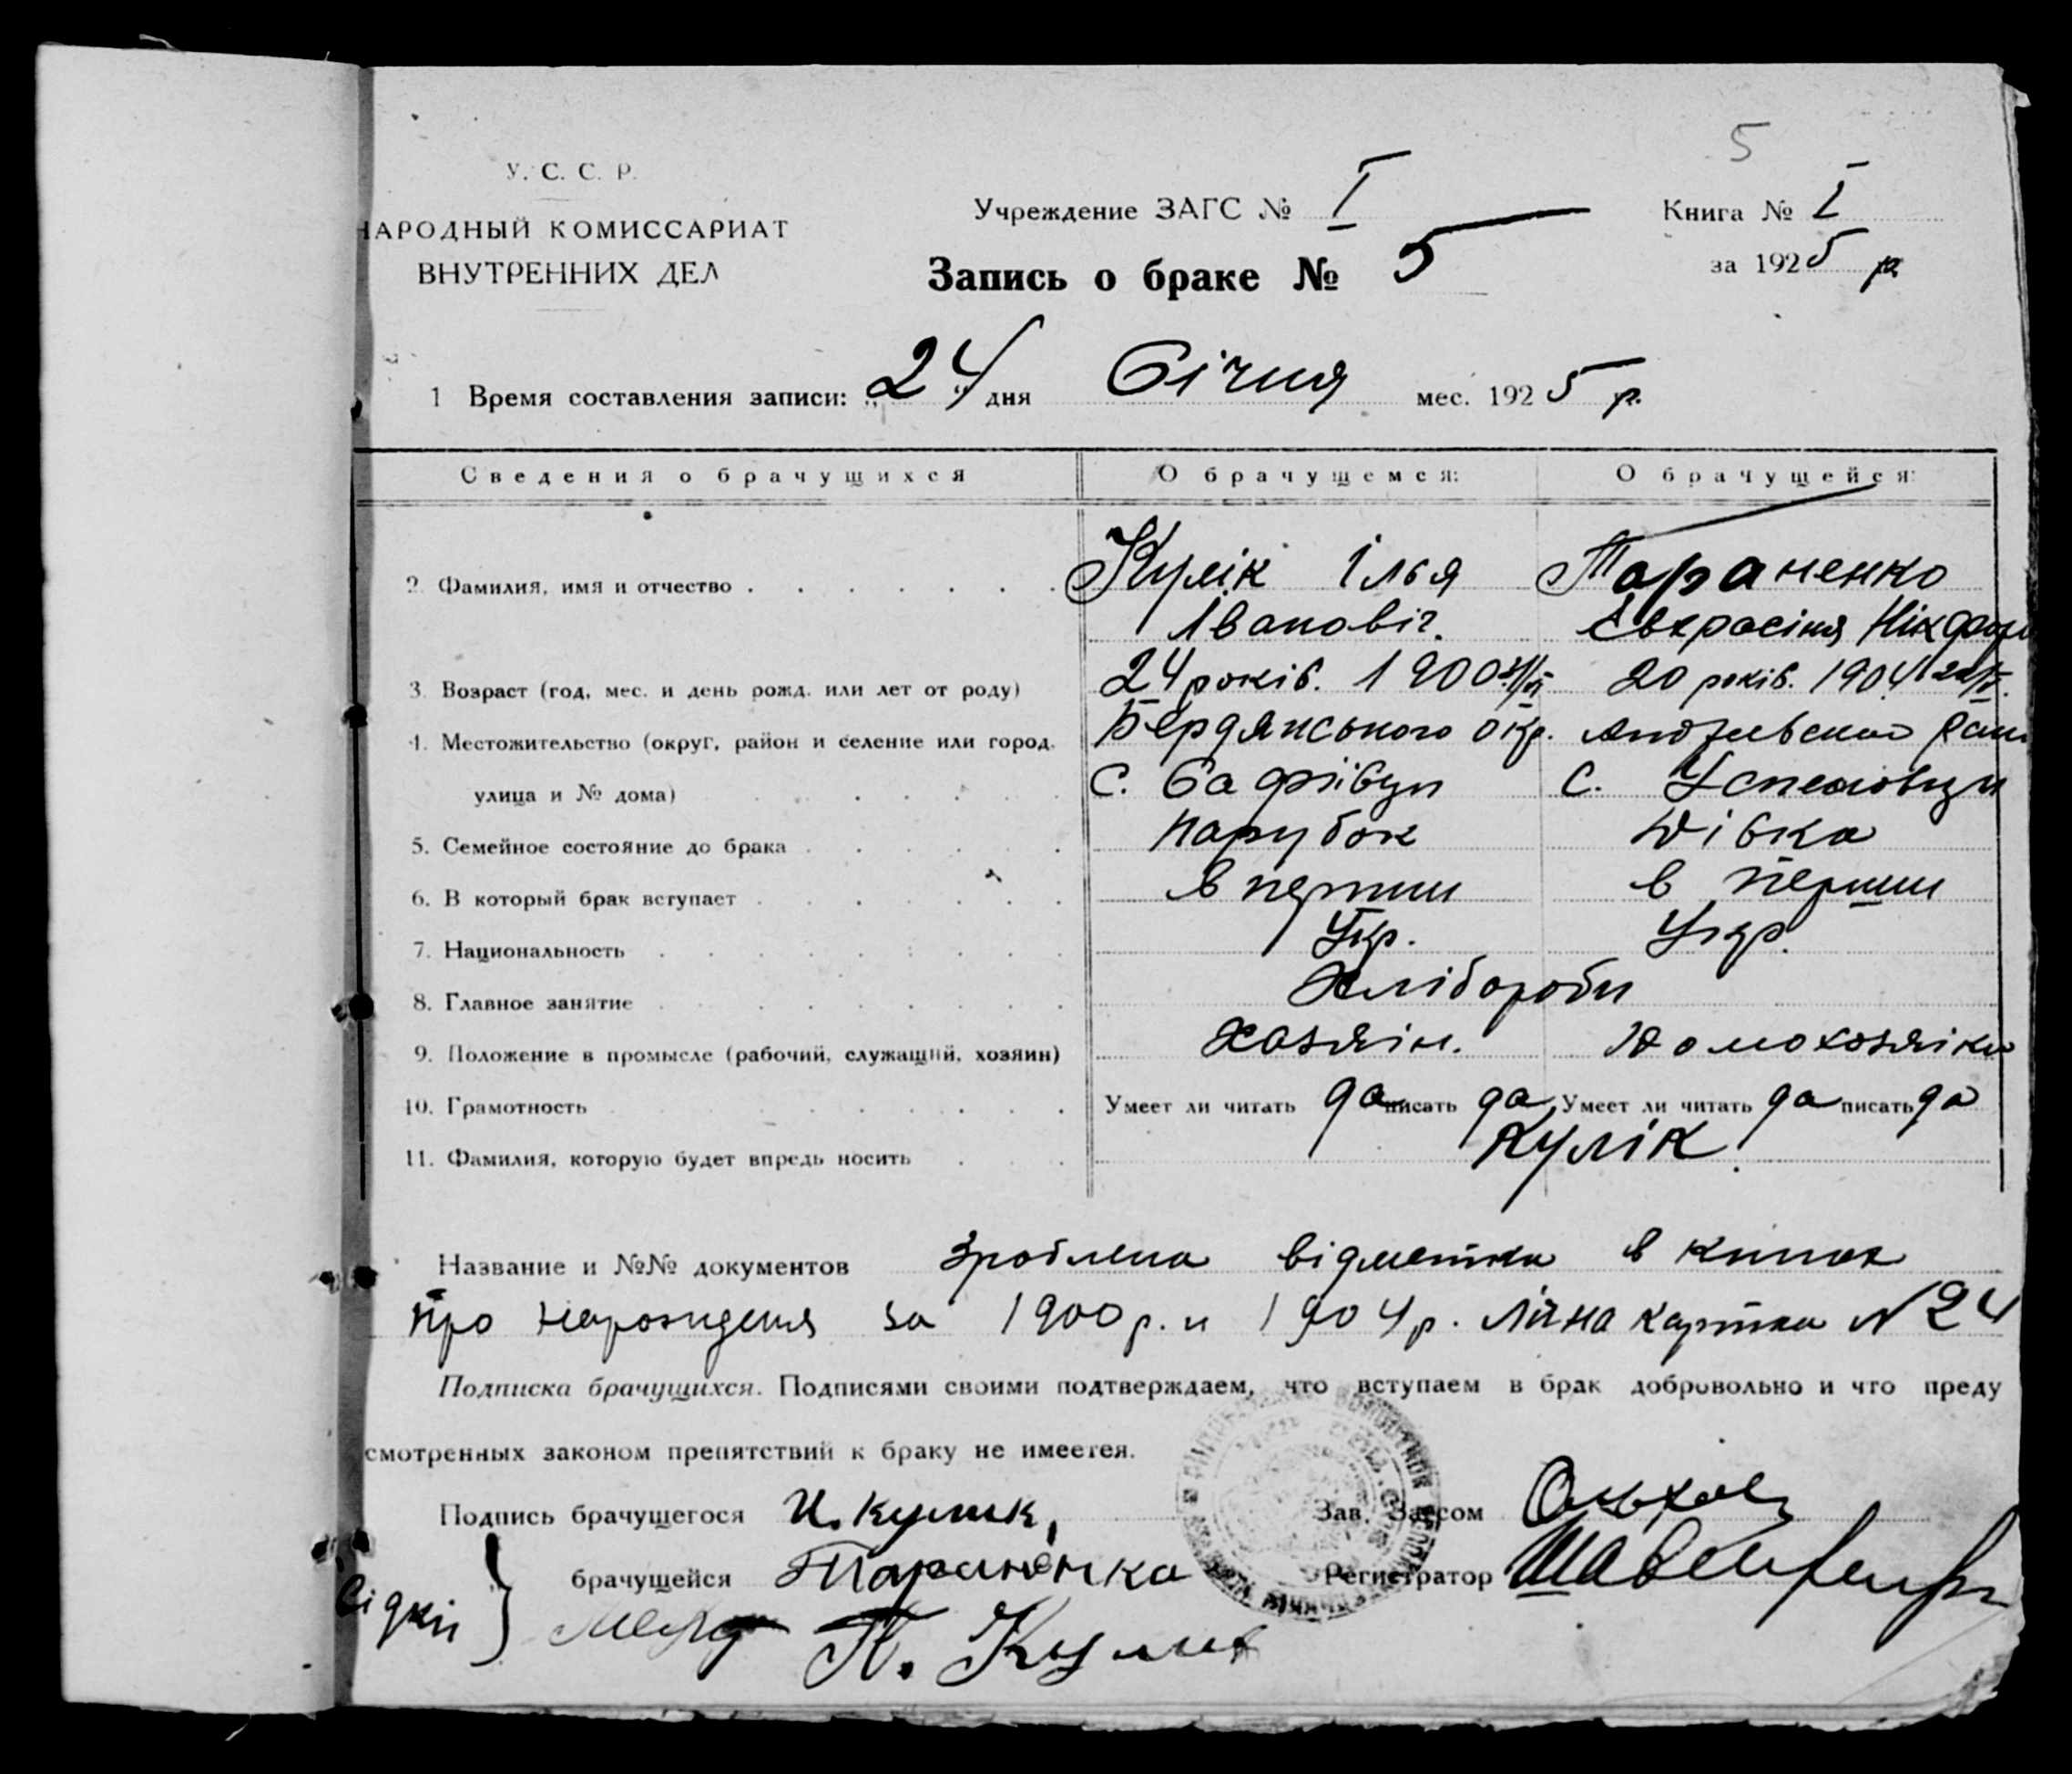 5
У. С. С. Р.
НАРОДНЫЙ КОМИССАРИАТ
ВНУТРЕННИХ ДЕЛ
Учреждение ЗАГС № I
Запись о браке № 5
Книга № I
за 1925 р
1 Время составления записи: „24" дня Січня мес. 1925 р.
Сведения о брачущихся О брачущемся: О брачущейся:
2. Фамилия, имя и отчество Кулік Ілья Тараненко
Івановіч. Евхрасіня Нікфор
3. Возраст (год, мес. и день рожд. или лет от роду) 24 років. 1900 20 років. 1904
4. Местожительство (округ, район и селение или город, Бердянського окр. Андреевского Рай.
улица и № дома) с. Софіївци с. Успеновци
5. Семейное состояние до брака парубок дівка
6. В который брак вступает в перший в перший
7. Национальность Укр. Укр.
8. Главное занятие Хлібороби
9. Положение в промысле (рабочий, служащий, хозяин) хозяін. домохозяіка
10. Грамотность Умеет ли читать да писать да Умеет ли читать да писать да
11. Фамилия, которую будет впредь носить Кулік
Название и №№ документов Зроблена відметка в книгах
про народження за 1900 р. и 1904 р. картка N 24
Подписка брачущихся. Подписями своими подтверждаем, что вступаем в брак добровольно и что преду
смотренных законом препятствий к браку не имеется.
Подпись брачущегося И. Кулик, Зав. Загсом
брачущейся Тараненко Регистратор
Сідкі } П. Кулик